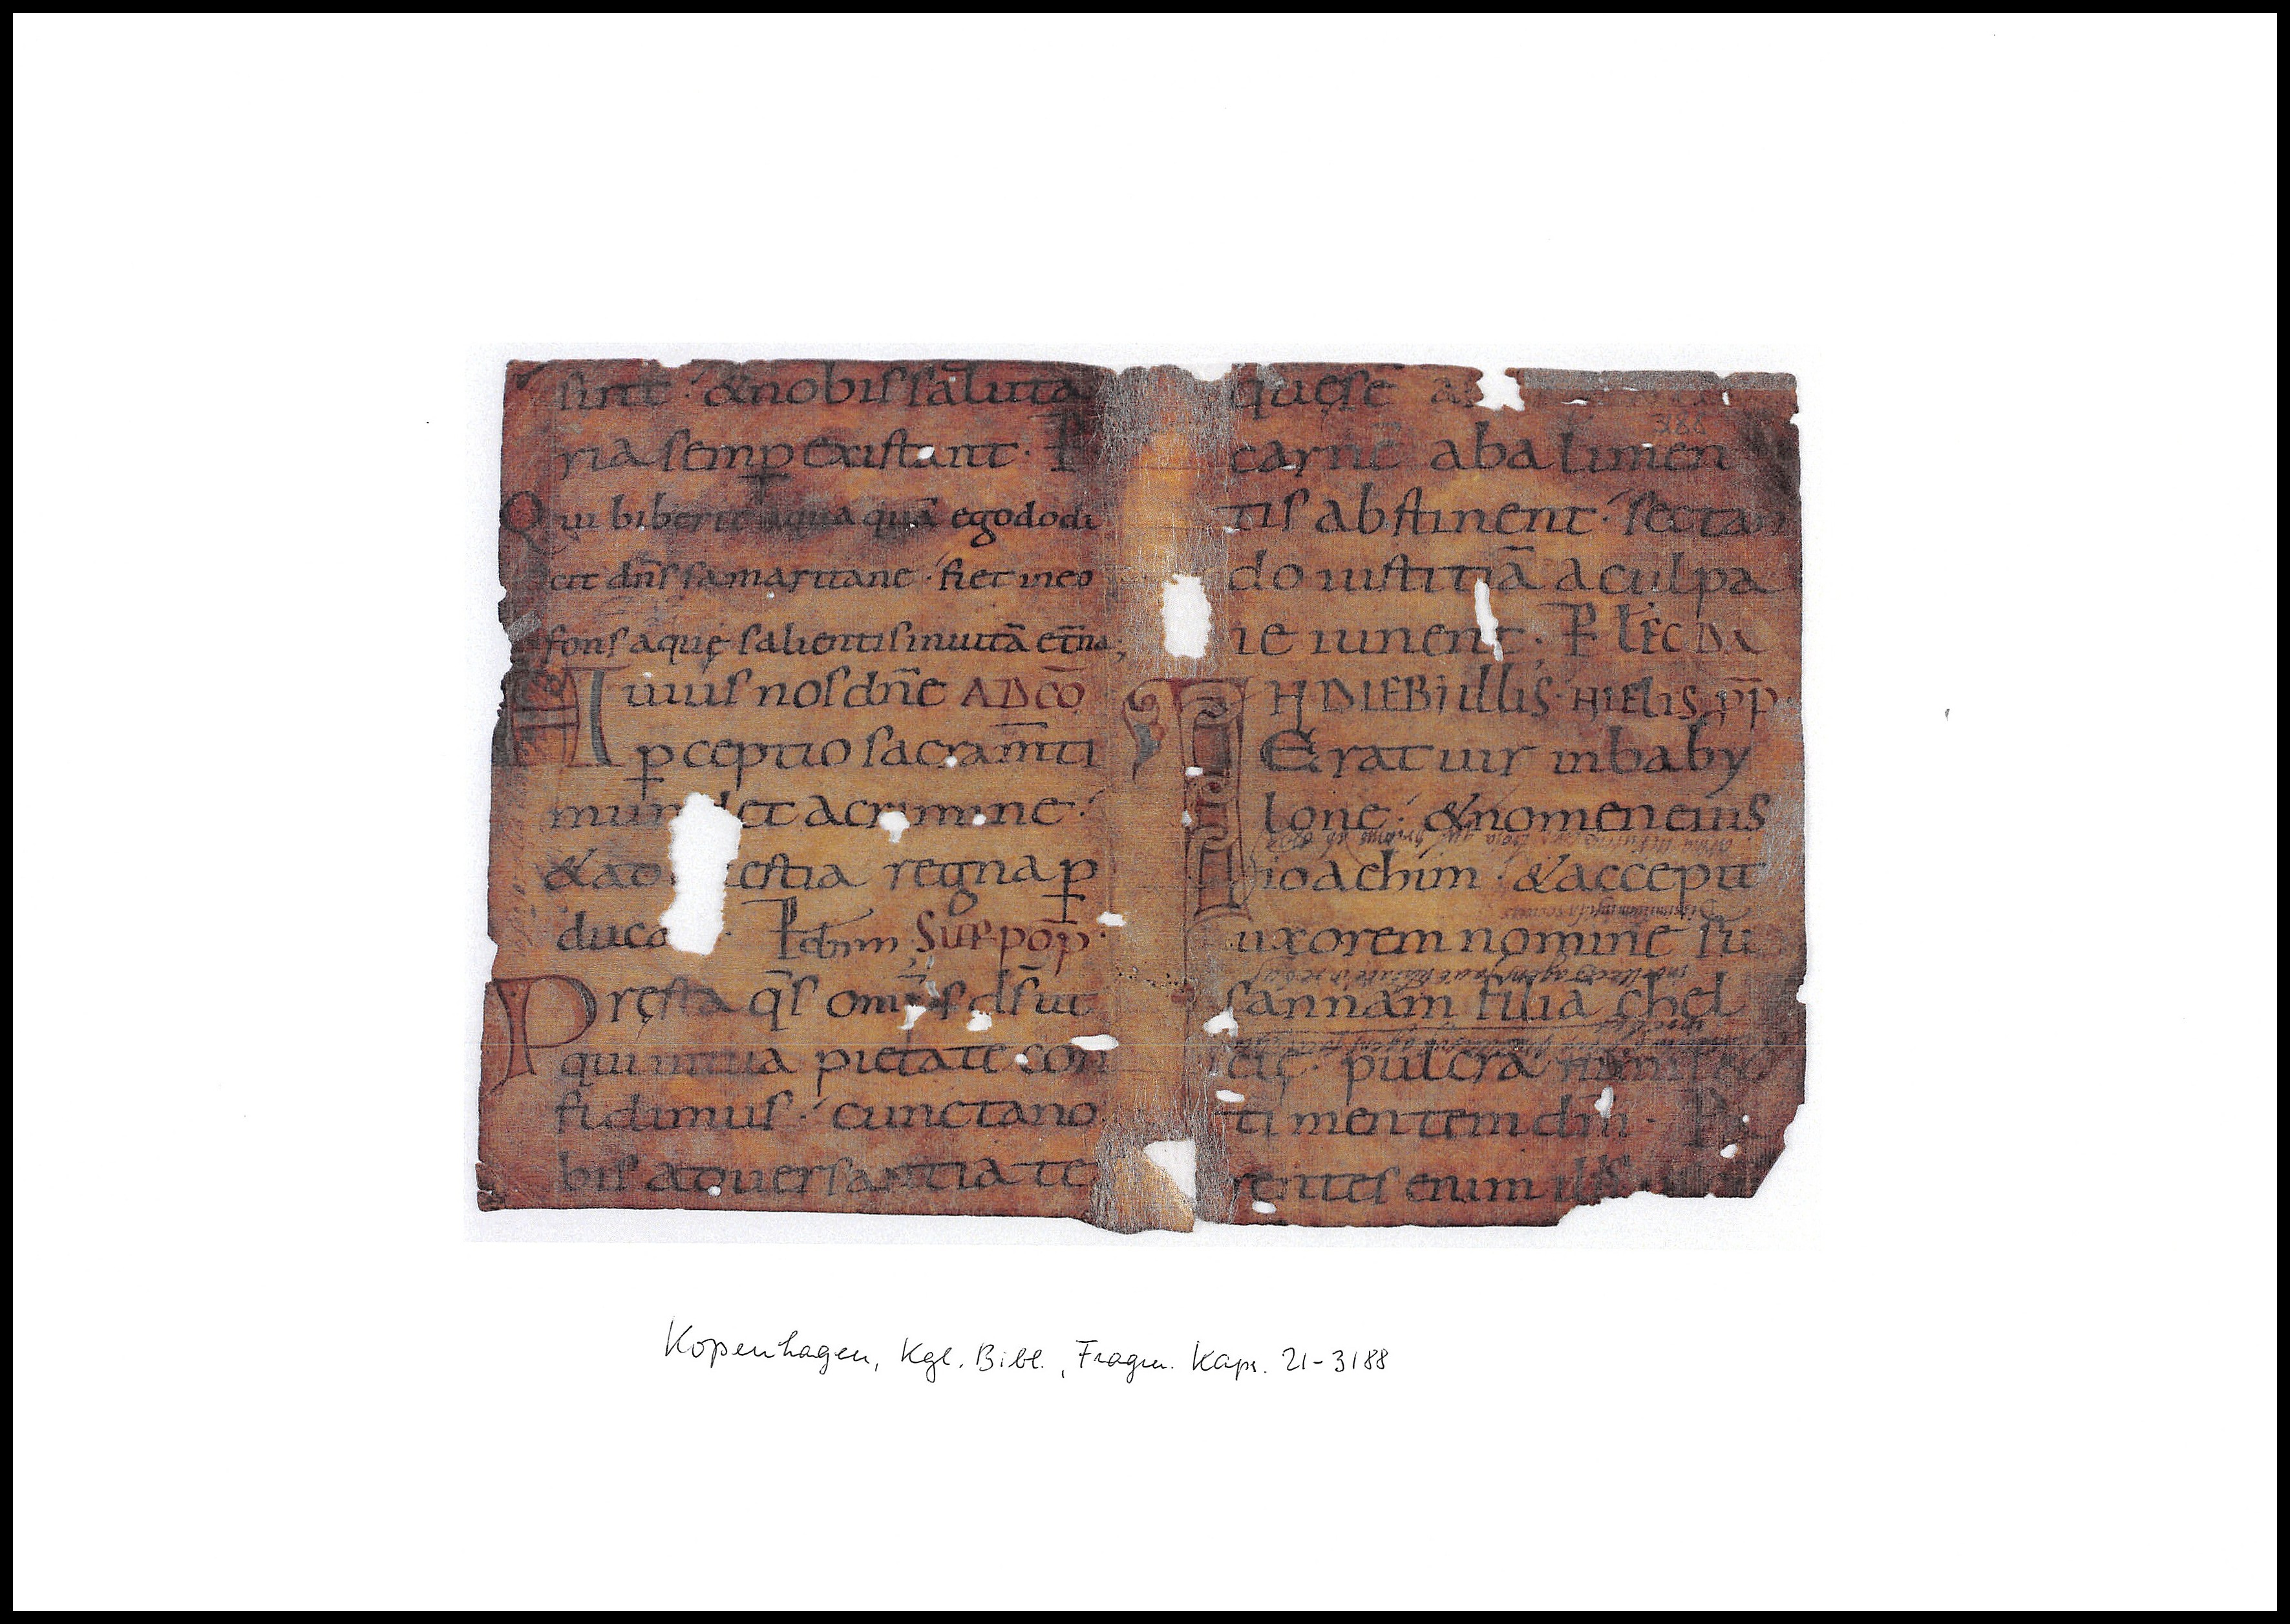 sint · & nobis saluta
ria semp existant · P
Qui biberit aqua quā ego do di
cit dn̄s samaritane · fiet in eo
fons aquę salientis in uitā et̄na;
Huius nos dn̄e AD CŌ
p ceptio sacram̄ti
mun det a crimine ·
& ad estia regna p
duca · P dn̄m SUP POP̄
Pręsta q̄s om̄ps ds̄ ut
qui in tua pietate con
fidimus · cuncta no
bis aduersantia te
quęse a
carnē ab alimen
tis abstinent · sectan
do iustitiā a culpa
ie iunent · P LĒC DA
IN DIEB; illis · HIELIS PP̄
Erat uir in baby
lone · & nomen eius
ioachim · & accepit
uxorem nomine su
sannam filia chel
cię · pulcra nimis &
ti mentem dm̄ · Pa
rentes enim illi
Kopenhagen, Kgl. Bibl., Fragm. Kaps. 21-3188